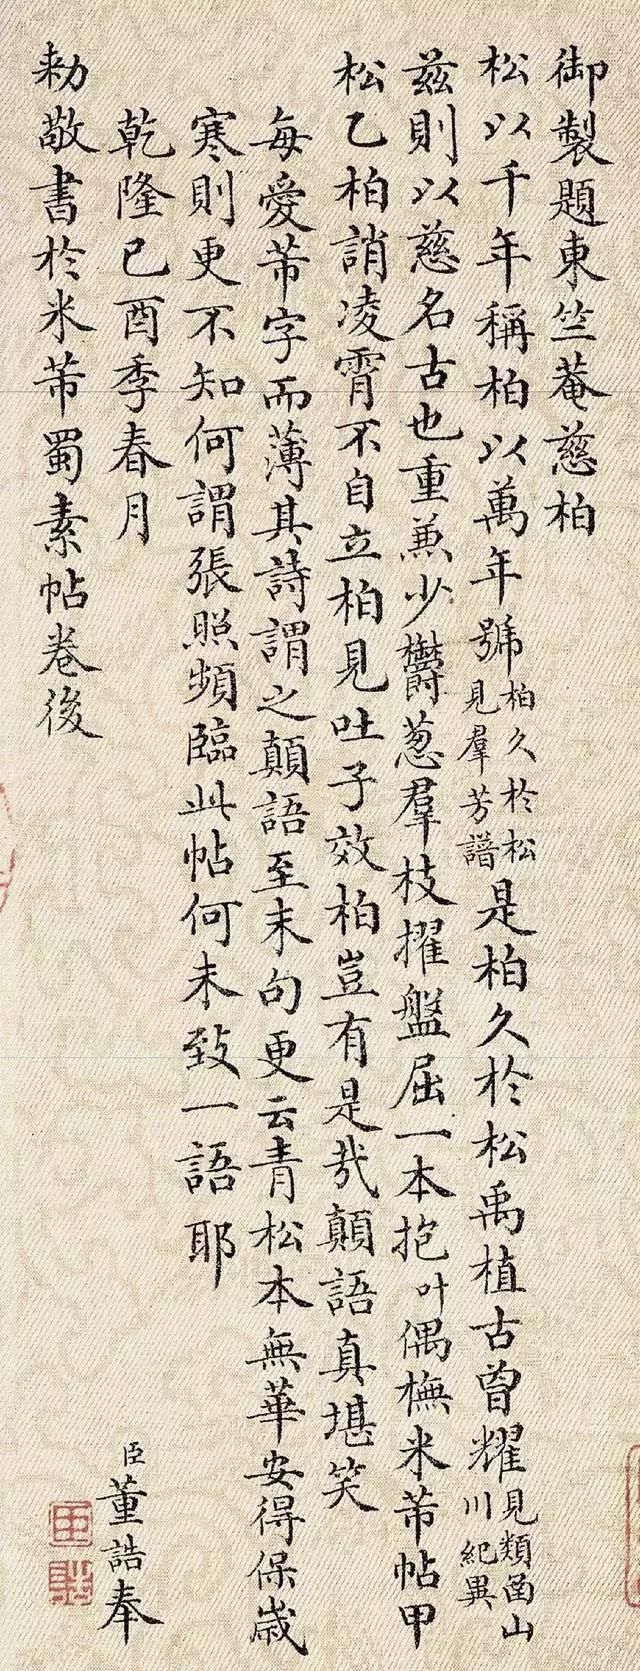 御製題東竺菴慈柏
松以千年稱柏以萬年號柏久於松見羣芳譜是柏久於松禹植古曾耀見類函山川紀異
茲則以慈名古也重兼少欝葱羣枝擢盤屈一本抱叶偶橅米芾帖甲
松乙柏誚凌霄不自立柏見吐子效柏豈有是哉顛語真堪笑
每愛芾字而薄其詩謂之顛語至末句更云青松本無華安得保歲
寒則更不知何謂張照頻臨此帖何未致一語耶
乾隆己酉季春月 臣董誥奉
勅敬書於米芾蜀素帖卷後